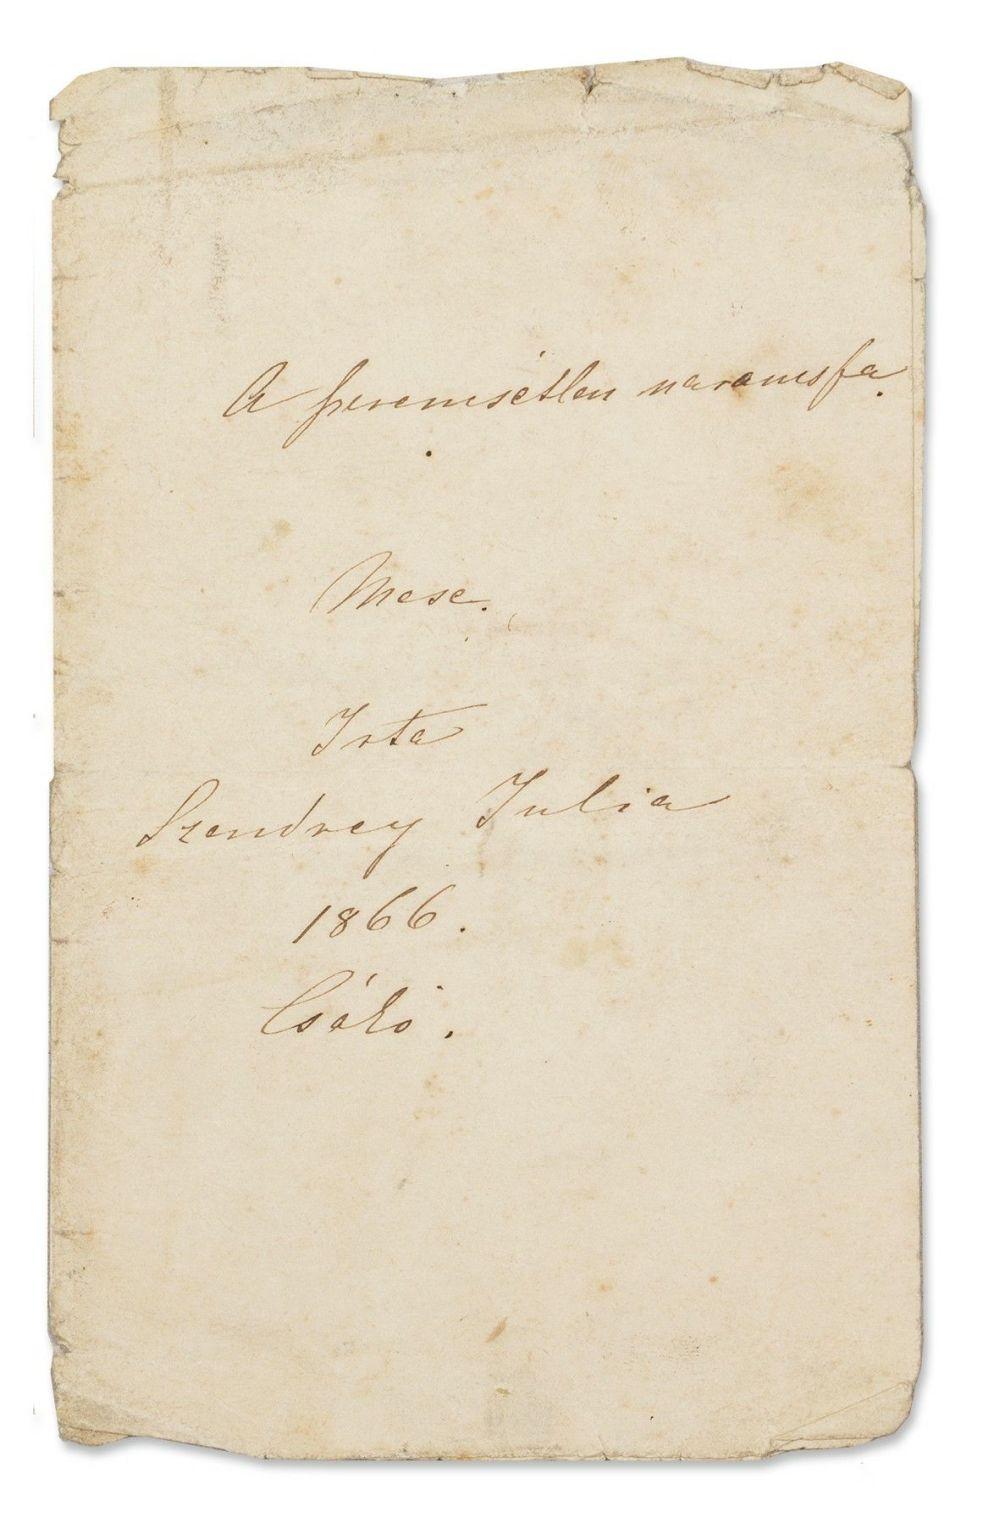 A szerencsétlen narancsfa.
Mese.
Irta
Szendrey Julia
1866.
Csákó.